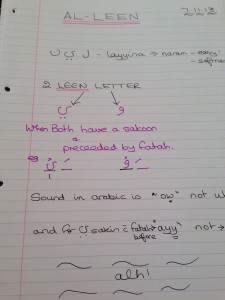 AL-LEEN
7.11.13
ل ي ن - layyina → naram - easy/
- softne
2 LEEN LETTER
ي و
When Both have a sakoon
& preceeded by fatah.
eg
Sound in arabic is "ow" not
and for ي sakin c̄ fatah "ayy" not →
before
alh!